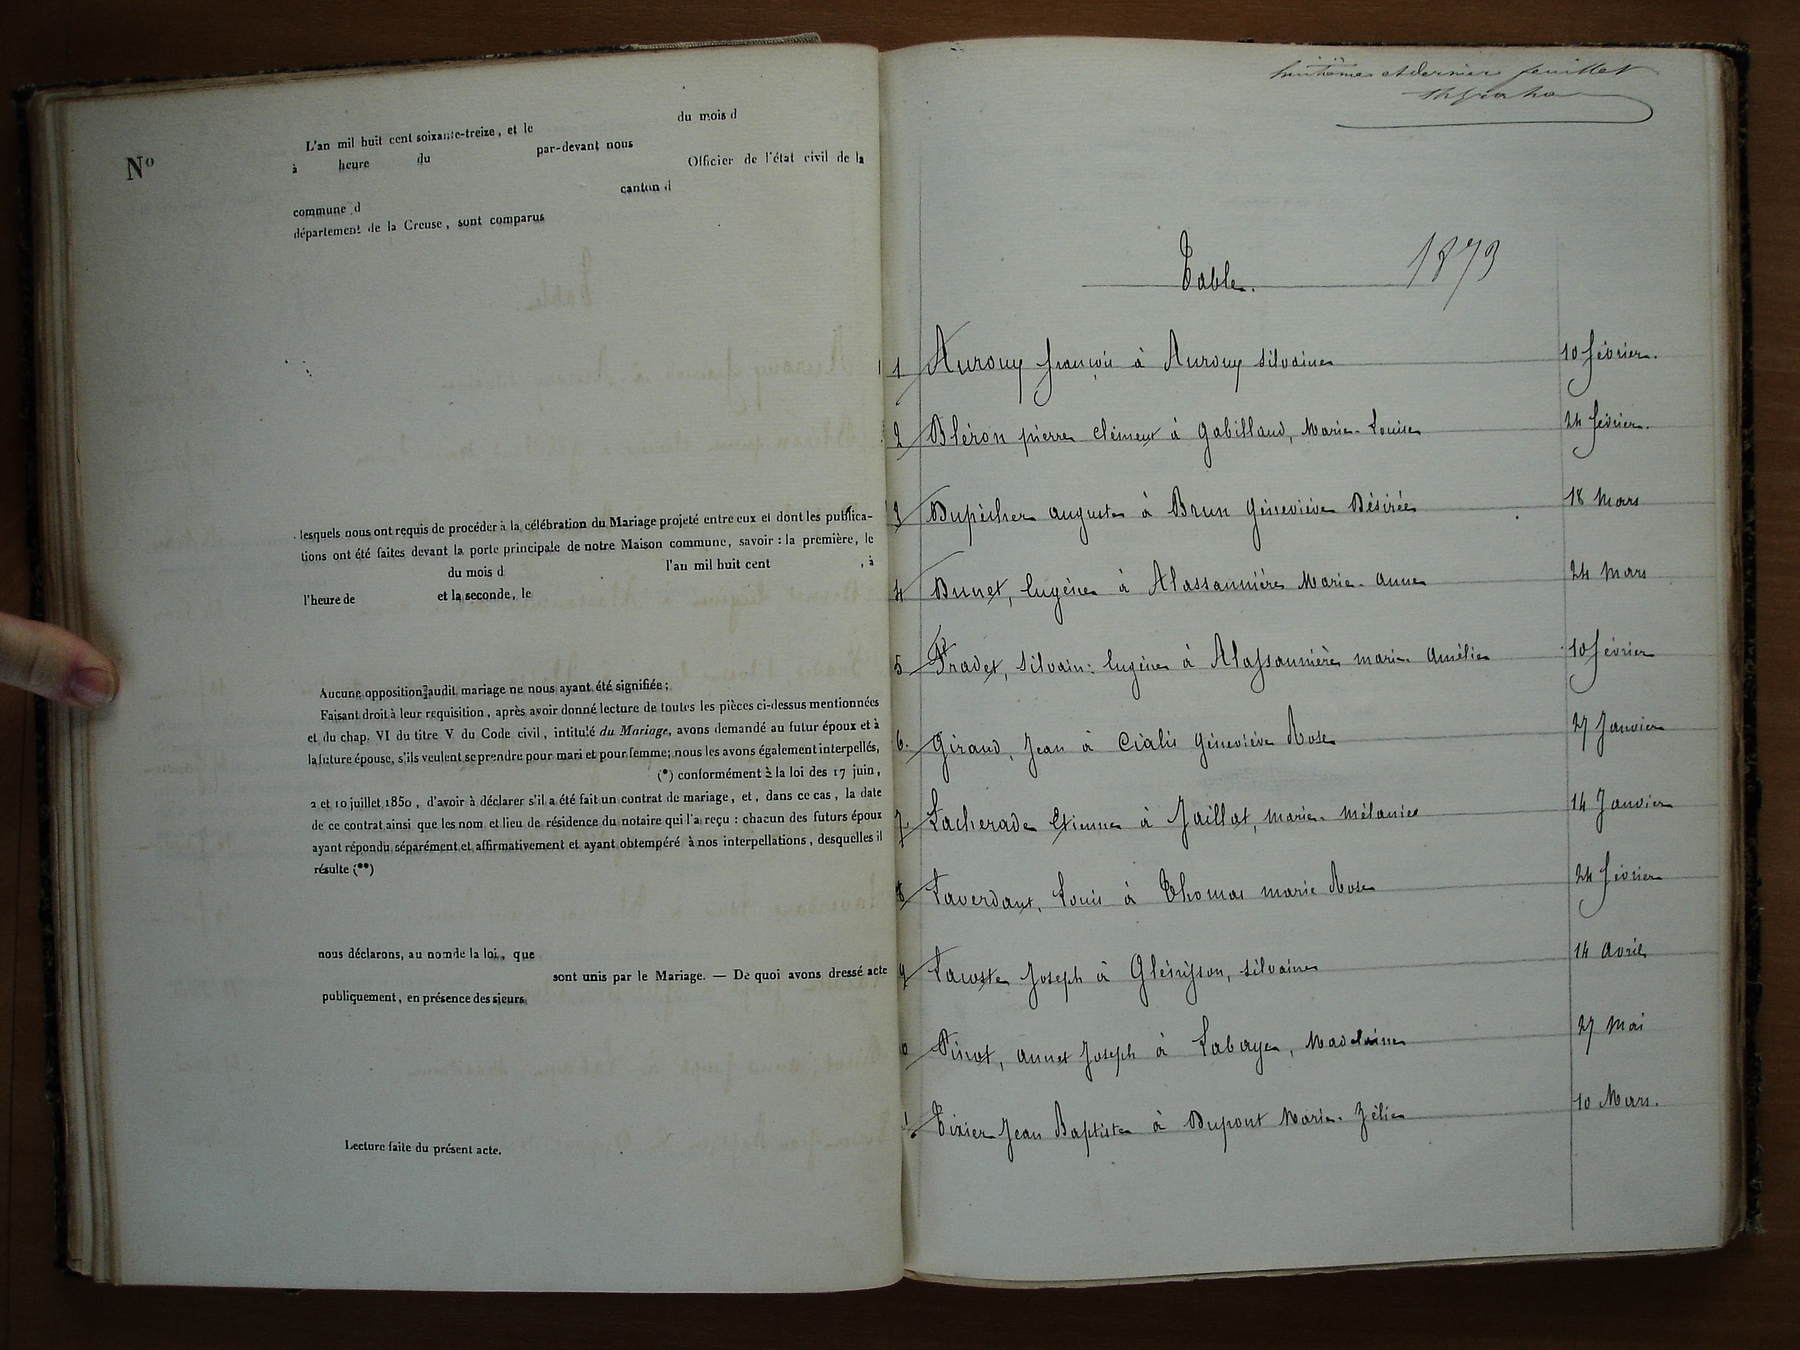 L'an mil huit cent soixante-treize, et le du mois d
No à heure du par-devant nous
Officier de l'état civil de la
commune d canton d
département de la Creuse, sont comparus
lesquels nous ont requis de procéder à la célébration du Mariage projeté entre eux et dont les publica-
tions ont été faites devant la porte principale de notre Maison commune, savoir : la première, le
du mois d l'an mil huit cent , à
l'heure de et la seconde, le
Aucune opposition audit mariage ne nous ayant été signifiée;
Faisant droit à leur requisition, après avoir donné lecture de toutes les pièces ci-dessus mentionnées
et du chap. VI du titre V du Code civil, intitulé du Mariage, avons demandé au futur époux et à
la future épouse, s'ils veulent se prendre pour mari et pour femme; nous les avons également interpellés,
(*) conformément à la loi des 17 juin,
2 et 10 juillet 1850, d'avoir à déclarer s'il a été fait un contrat de mariage, et, dans ce cas, la date
de ce contrat ainsi que les nom et lieu de résidence du notaire qui l'a reçu : chacun des futurs époux
ayant répondu séparément et affirmativement et ayant obtempéré à nos interpellations, desquelles il
résulte (**)
nous déclarons, au nom de la loi, que
sont unis par le Mariage. — De quoi avons dressé acte
publiquement, en présence des sieurs
Lecture faite du présent acte.
huitième et dernier feuillet
Table. 1873
1 Aurouy françois à Aurouy silvaine 10 février.
2 Bléron pierre clément à Gabillaud, Marie-Louise 24 février.
3 Dupêcher auguste à Brun Géneviève Désirée 18 Mars
4 Dunet, Eugène à Alassaunière Marie-Anne 24 Mars
5 Fradet, Silvain-Eugène à Alassaunière marie-Amélie 10 février
6. Giraud, Jean à Cialis Géneviève Rose 27 Janvier
7. Lacherade Etienne à Jaillot, marie-mélanie 14 Janvier
8 Laverdant, Louis à Thomas marie Rose 24 février
9 Lacoste Joseph à Glénisson, silvaine 14 Avril
0 Pinot, annet Joseph à Labaye, Madelaine 27 Mai
1. Tixier Jean Baptiste à Dupont Marie-Zélie 10 Mars.